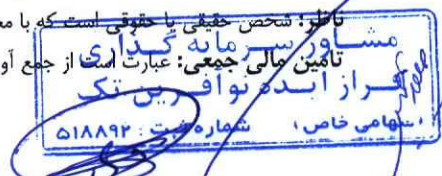 ناظر: شخص حقیقی یا حقوقی است که با مع
تامین مالی جمعی: عبارت است از جمع آو
مشاور سرمایه گذاری
فراز ایده نوآفرین تک
(سهامی خاص) شماره ثبت: ۵۱۸۸۹۲